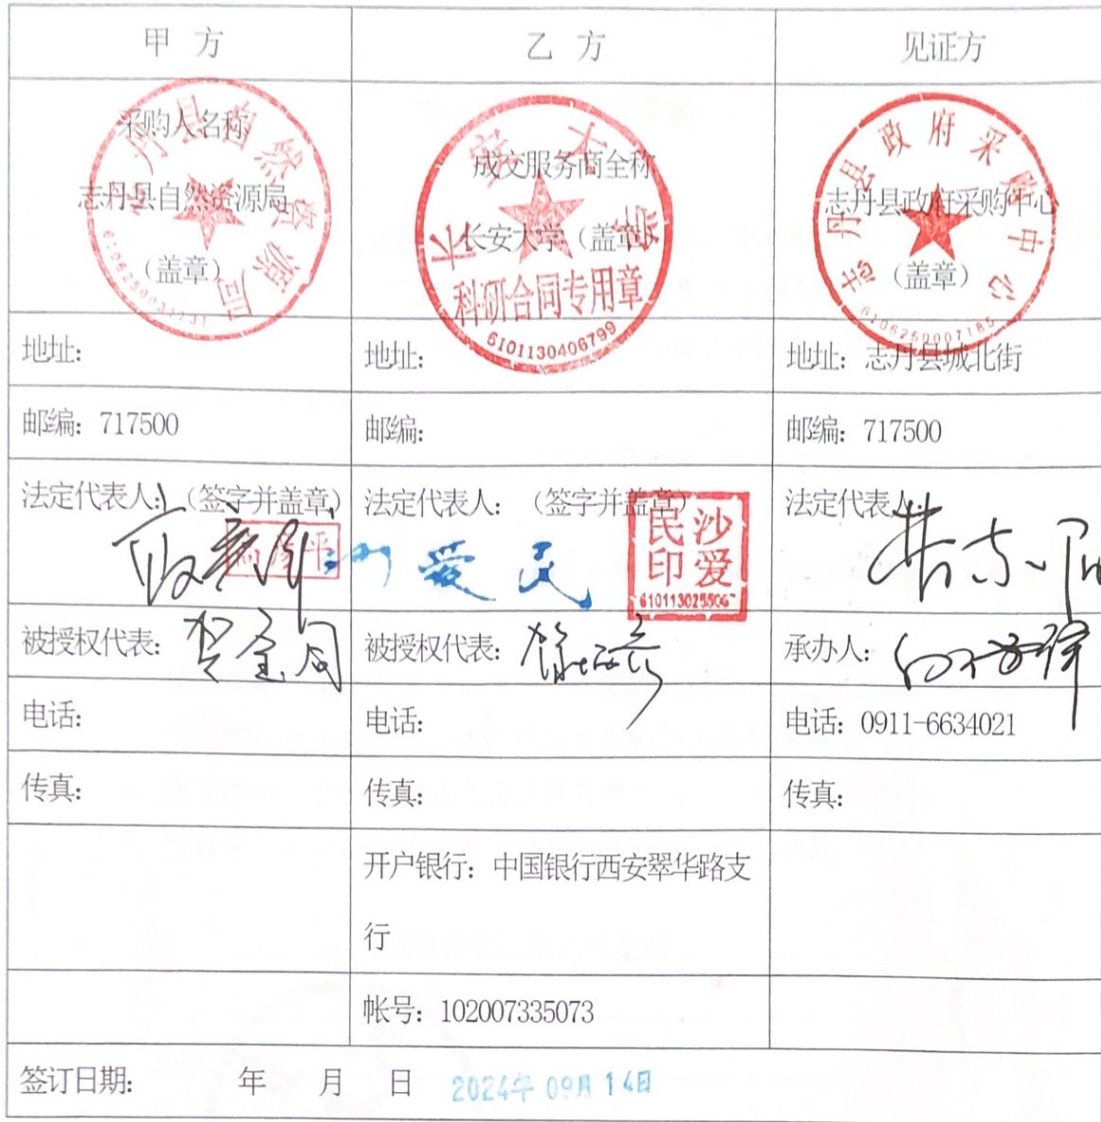 甲 方
乙 方
见证方
采购人名称
志丹县自然资源局
(盖章)
志丹县自然资源局
成交服务商全称
长安大学(盖章)
长安大学
科研合同专用章
6101130406799
志丹县政府采购中心
(盖章)
志丹县政府采购中心
6106250007185
地址:
地址:
地址: 志丹县城北街
邮编: 717500
邮编:
邮编: 717500
法定代表人: (签字并盖章)
法定代表人: (签字并盖章)
沙爱民
沙爱民印
法定代表人
被授权代表:
被授权代表:
承办人:
电话:
电话:
电话: 0911-6634021
传真:
传真:
传真:
开户银行: 中国银行西安翠华路支
行
帐号: 102007335073
签订日期: 年 月 日 2024年 09月 14日